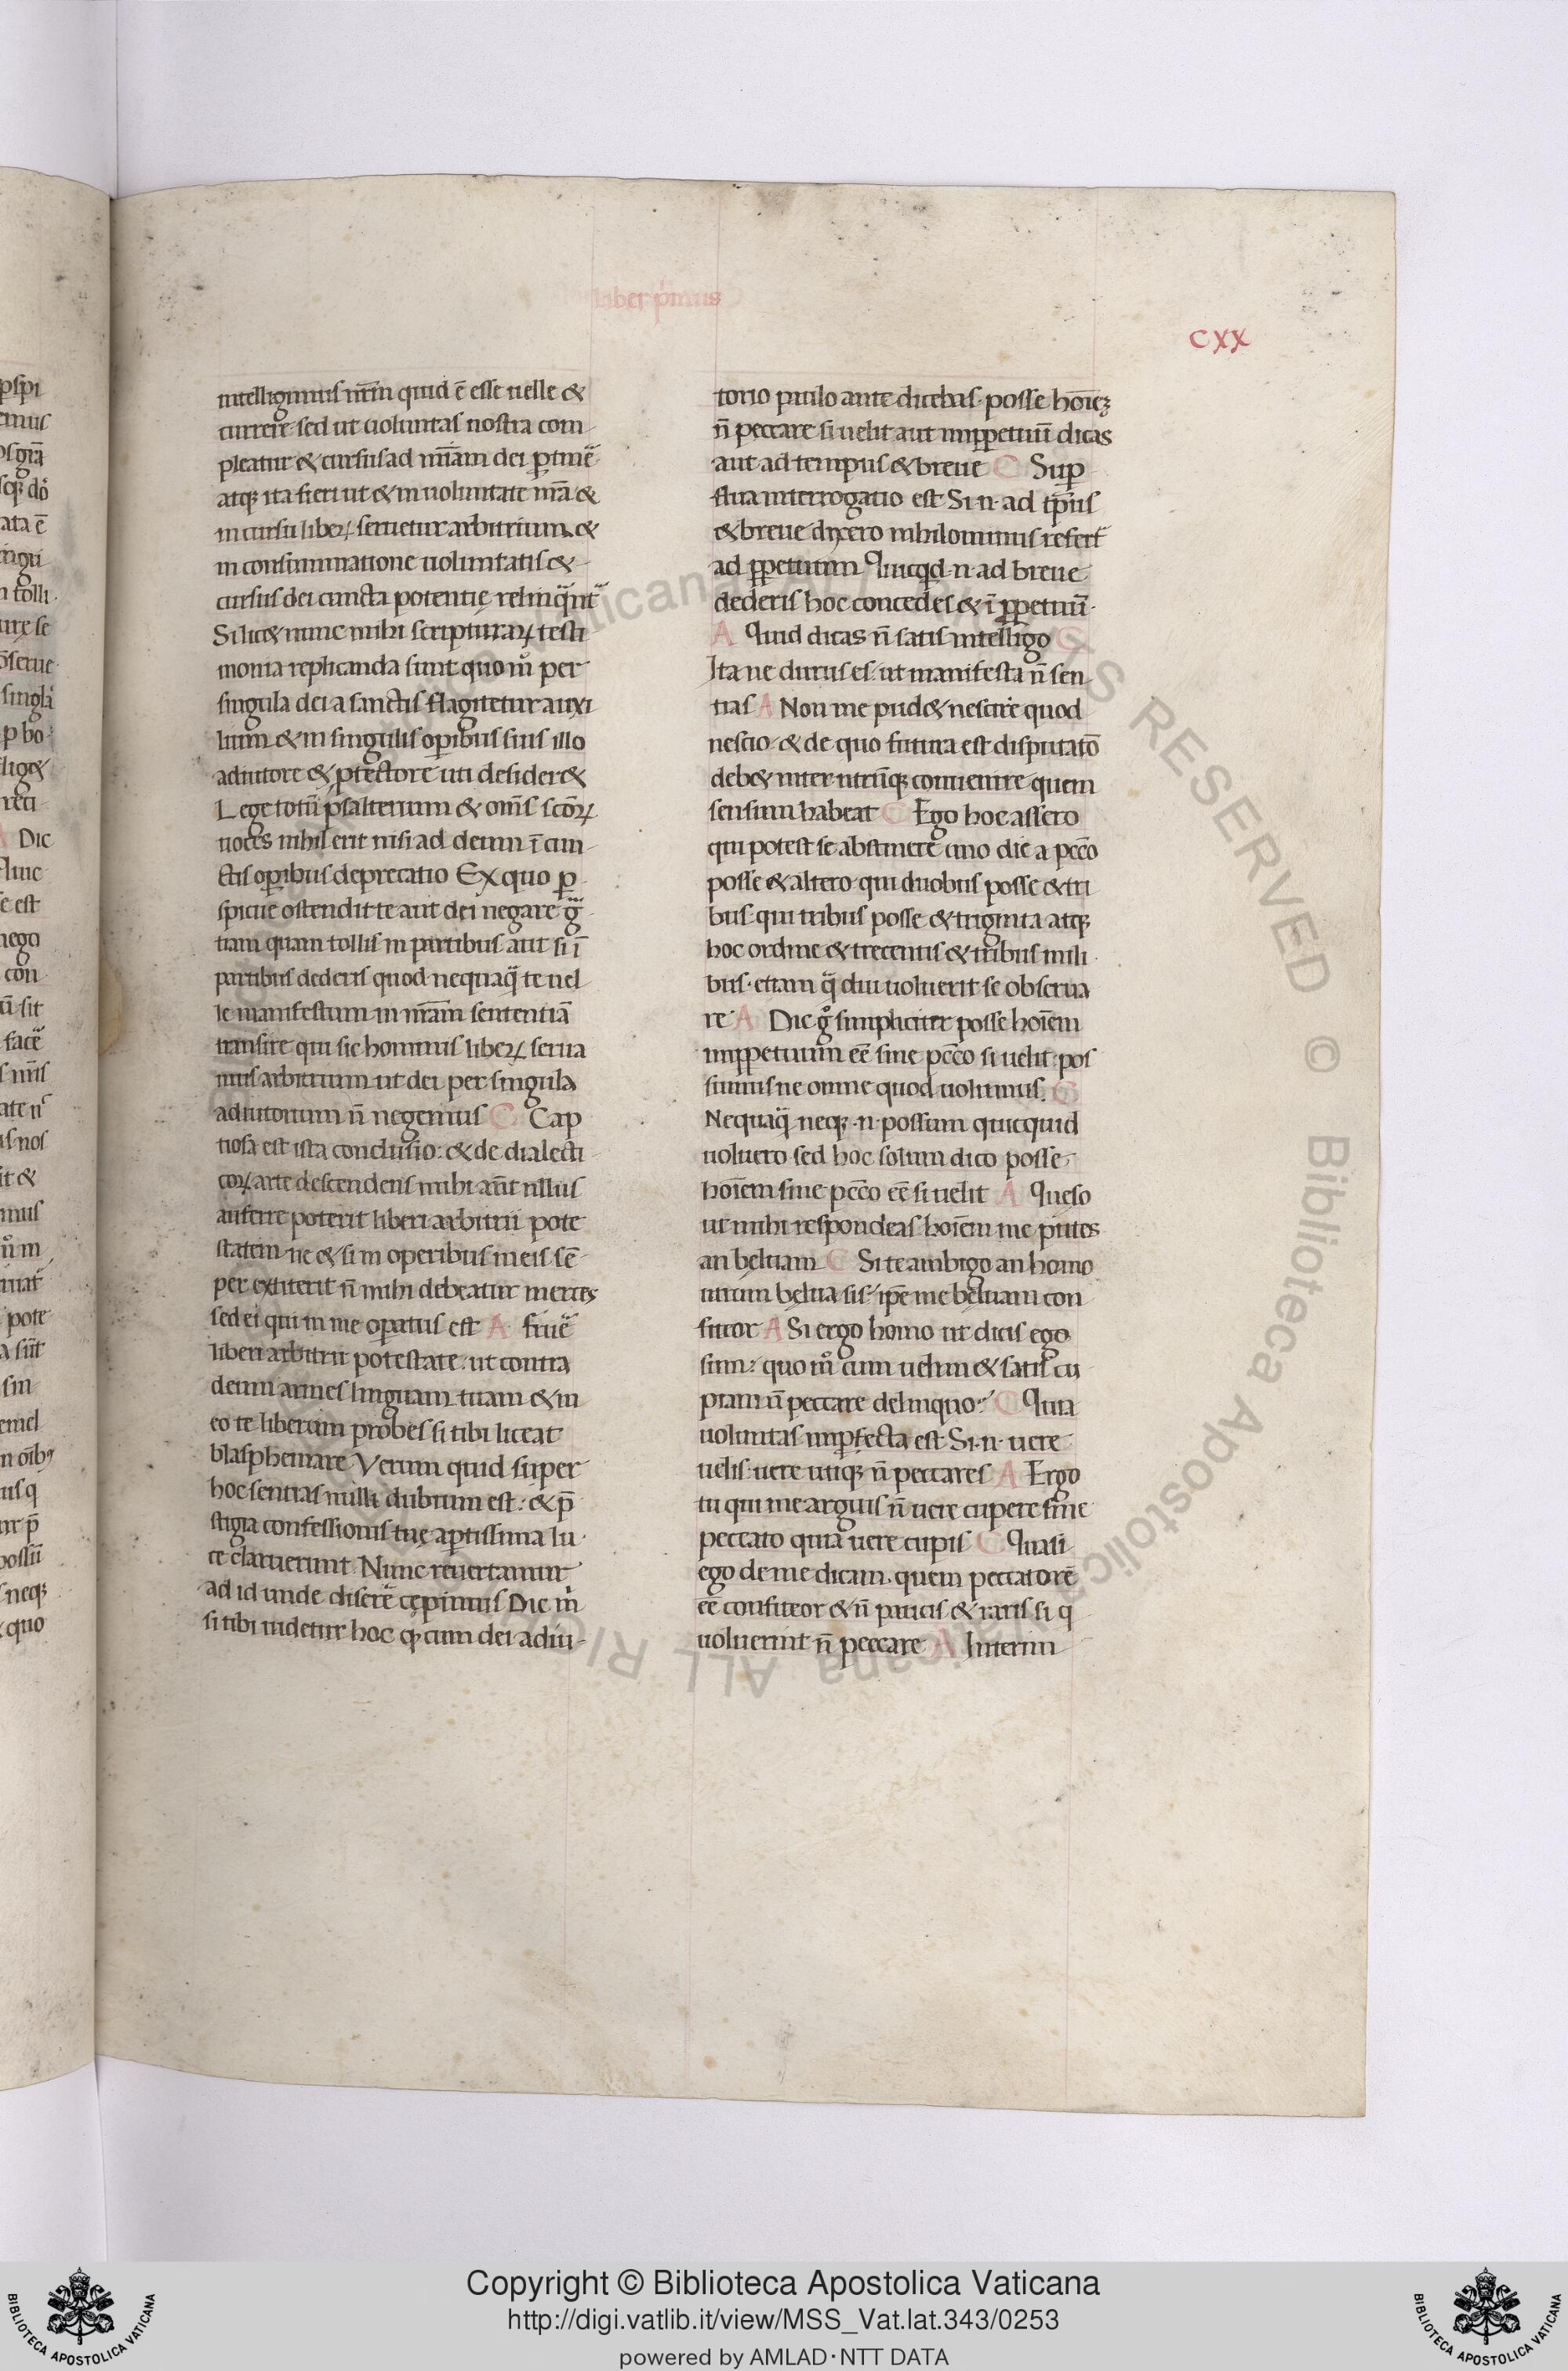 liber p̄mus
CXX
intelligimus nr̄m quid ē esse uelle &
currere sed ut uoluntas nostra com
pleatur & cursus ad mīam dei ꝑtinē
atqꝫ ita fieri ut & in uoluntate nr̄a &
in cursu liberꝝ seruetur arbitrium &
in consummatione uoluntatis &
cursus dei cuncta potentię relinq̄nt̄
Si licet nunc mihi scripturarꝝ testi
monia replicanda sunt quo m̊ per
singula dei a sanctis flagitetur auxi
lium & in singulis oꝑibus suis illo
adiutore & ꝓtectore uti desider&
Lege totū psalterium & om̄s sc̄orꝝ
uoces nihil erit nisi ad deum ī cun
ctis oꝑibus deprecatio Ex quo ꝑ
spicue ostendit te aut dei negare gr̄
tiam quam tollis in partibus aut si ī
partibus dederis quod nequaq̄ te uel
le manifestum in nr̄am sententiā
transire qui sic hominis liberꝝ serua
mus arbitrium ut dei per singula
adiutorium n̄ negemus C Cap
tiosa est ista conclusio: & de dialecti
corꝝ arte descendens mihi aūt nllus
auferre poterit liberi arbitrii pote
statem ne & si in operibus meis sē
per extiterit n̄ mihi debeatur merces
sed ei qui in me oꝑatus est A fruē
liberi arbitrii potestate. ut contra
deum armes linguam tuam & in
eo te liberum probes si tibi liceat
blasphemare Verum quid super
hoc sentias nulli dubium est: & p̄
stigia confessionis tuę aꝑtissima lu
ce claruerunt Nunc reuertamur
ad id unde diserē cępimus Dic m̊
si tibi uidetur hoc qꝫ cum dei adiu
torio paulo ante dicebas posse hoīeꝫ
n̄ peccare si uelit aut imꝑpetuū dicas
aut ad tempus & breue C Suꝑ
flua interrogatio est Si n̄ ad tp̄us
& breue dixero nihilominus refert̄
ad ꝑpetuum Quicqd n̄ ad breue
dederis hoc concedes & ī ꝑpetuū
A Quid dicas n̄ satis intelligo C
Ita ne durus es ut manifesta n̄ sen
tias A Non me pud& nescire quod
nescio & de quo futura est disputatō
deb& inter utrūqꝫ conuenire quem
sensum habeat C Ego hoc assero
qui potest se abstinere uno die a pcc̄o
posse & altero qui duobus posse & tri
bus qui tribus posse & triginta atqꝫ
hoc ordine & trecentis & tribus mili
bus etiam q̄ diu uoluerit se obserua
re A Dic g̊ simpliciter posse hoīem
imꝑpetuum eē sine pcc̄o si uelit pos
sumus ne omne quod uolumus. C
Nequaq̄ neqꝫ n̄ possum quicquid
uoluero sed hoc solum dico posse
hoīem sine pcc̄o eē si uelit A Queso
ut mihi respondeas hoīem me putes
an beluam C Si te ambigo an homo
utrum bęlua sis ip̄e me bęluam con
fiteor A Si ergo homo ut dicis ego
sum: quo m̊ cum uelim & satis cu
piam n̄ peccare delinquo? C Quia
uoluntas imꝑfecta est Si n̄ uere
uelis uere utiqꝫ n̄ peccares A Ergo
tu qui me arguis n̄ uere cupere sine
peccato quia uere cupis C Quasi
ego de me dicam. quem peccatorē
eē confiteor & n̄ paucis & raris si q
uoluerint n̄ peccare A Interim
Copyright © Biblioteca Apostolica Vaticana
http://digi.vatlib.it/view/MSS_Vat.lat.343/0253
powered by AMLAD·NTT DATA